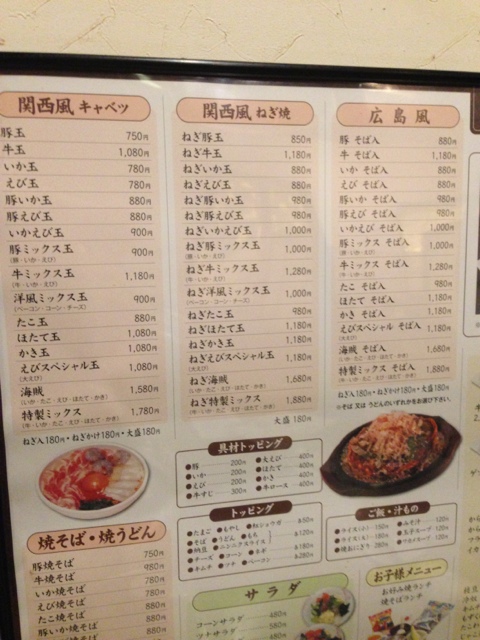 関西風 キャベツ
豚玉 750円
牛玉 1,080円
いか玉 780円
えび玉 780円
豚いか玉 880円
豚えび玉 880円
いかえび玉 900円
豚ミックス玉 900円
(豚・いか・えび)
牛ミックス玉 1,180円
(牛・いか・えび)
洋風ミックス玉 900円
(ベーコン・コーン・チーズ)
たこ玉 880円
ほたて玉 1,080円
かき玉 1,080円
えびスペシャル玉 1,080円
(大えび)
海賊 1,580円
(いか・たこ・えび・ほたて・かき)
特製ミックス 1,780円
(牛・いか・たこ・えび・ほたて・かき)
ねぎ入180円・ねぎかけ180円・大盛180円
焼そば・焼うどん
豚焼そば 750円
牛焼そば 980円
いか焼そば 780円
えび焼そば 780円
たこ焼そば 880円
豚いか焼そば 880円
関西風 ねぎ焼
ねぎ豚玉 850円
ねぎ牛玉 1,180円
ねぎいか玉 880円
ねぎえび玉 880円
ねぎ豚いか玉 980円
ねぎ豚えび玉 980円
ねぎいかえび玉 1,000円
ねぎ豚ミックス玉 1,000円
(豚・いか・えび)
ねぎ牛ミックス玉 1,280円
(牛・いか・えび)
ねぎ洋風ミックス玉 1,000円
(ベーコン・コーン・チーズ)
ねぎたこ玉 980円
ねぎほたて玉 1,180円
ねぎかき玉 1,180円
ねぎえびスペシャル玉 1,180円
(大えび)
ねぎ海賊 1,680円
(いか・たこ・えび・ほたて・かき)
ねぎ特製ミックス 1,880円
(牛・いか・たこ・えび・ほたて・かき)
大盛 180円
具材トッピング
●豚 200円 ●大えび 400円
●いか 200円 ●ほたて 400円
●えび 200円 ●かき 400円
●牛すじ 300円 ●牛ロース 400円
トッピング
●たまご ●もやし ●紅ショウガ 各50円
●そば ●うどん ●もち
●納豆 ●ニンニクスライス 各120円
●チーズ ●コーン ●ネギ 各180円
●キムチ ●ツナ ●ベーコン 各280円
サラダ
コーンサラダ 480円
ツナサラダ 580円
広島風
豚 そば入 880円
牛 そば入 1,180円
いか そば入 880円
えび そば入 880円
豚いか そば入 980円
豚えび そば入 980円
いかえび そば入 1,000円
豚ミックス そば入 1,000円
(豚・いか・えび)
牛ミックス そば入 1,280円
(牛・いか・えび)
たこ そば入 980円
ほたて そば入 1,180円
かき そば入 1,180円
えびスペシャル そば入 1,180円
(大えび)
海賊 そば入 1,680円
(いか・たこ・えび・ほたて・かき)
特製ミックス そば入 1,880円
(牛・いか・たこ・えび・ほたて・かき)
ねぎ入180円・ねぎかけ180円・大盛180円
※そば 又は うどんのいずれかをお選び下さい。
ご飯・汁もの
●みそ汁 120円
●玉子スープ 120円
●ワカメスープ 120円
●焼おにぎり 280円
お子様メニュー
お好み焼ランチ
焼そばランチ